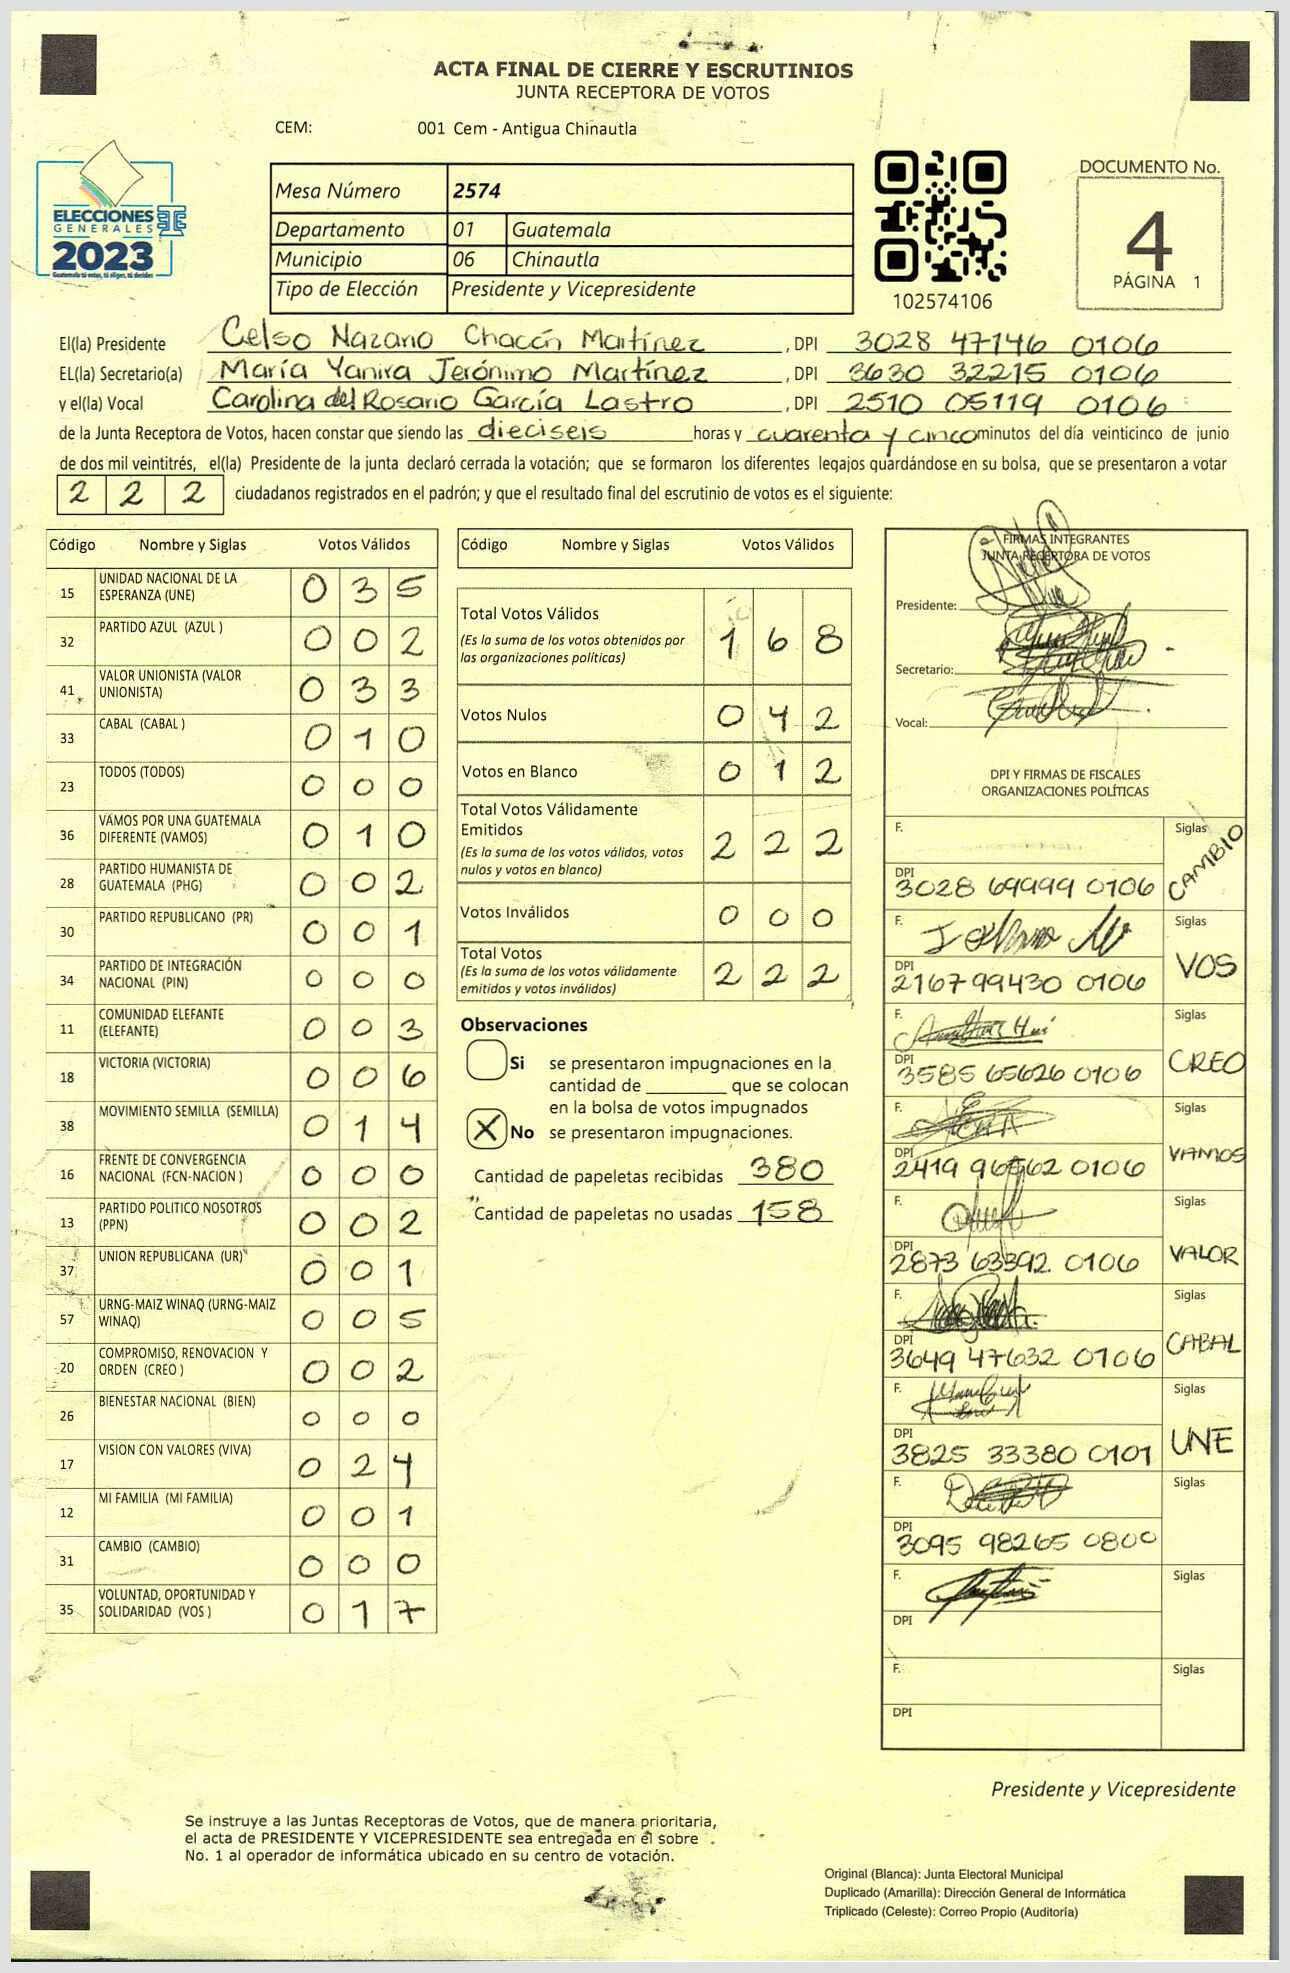 ACTA FINAL DE CIERRE Y ESCRUTINIOS
JUNTA RECEPTORA DE VOTOS
CEM: 001 Cem - Antigua Chinautla
ELECCIONES
GENERALES
2023
Guatemala tú votas, tú eliges, tú decides
Mesa Número 2574
Departamento 01 Guatemala
Municipio 06 Chinautla
Tipo de Elección Presidente y Vicepresidente
102574106
DOCUMENTO No.
4
PÁGINA 1
El(la) Presidente Celso Nazario Chacón Martínez, DPI 3028 47146 0106
EL(la) Secretario(a) María Yanira Jerónimo Martínez, DPI 3630 32215 0106
y el(la) Vocal Carolina del Rosario García Lastro, DPI 2510 05119 0106
de la Junta Receptora de Votos, hacen constar que siendo las dieciseis horas y cuarenta y cinco minutos del día veinticinco de junio
de dos mil veintitrés, el(la) Presidente de la junta declaró cerrada la votación; que se formaron los diferentes legajos guardándose en su bolsa, que se presentaron a votar
2 2 2 ciudadanos registrados en el padrón; y que el resultado final del escrutinio de votos es el siguiente:
Código Nombre y Siglas Votos Válidos
15 UNIDAD NACIONAL DE LA ESPERANZA (UNE) 0 3 5
32 PARTIDO AZUL (AZUL ) 0 0 2
41 VALOR UNIONISTA (VALOR UNIONISTA) 0 3 3
33 CABAL (CABAL ) 0 1 0
23 TODOS (TODOS) 0 0 0
36 VAMOS POR UNA GUATEMALA DIFERENTE (VAMOS) 0 1 0
28 PARTIDO HUMANISTA DE GUATEMALA (PHG) 0 0 2
30 PARTIDO REPUBLICANO (PR) 0 0 1
34 PARTIDO DE INTEGRACIÓN NACIONAL (PIN) 0 0 0
11 COMUNIDAD ELEFANTE (ELEFANTE) 0 0 3
18 VICTORIA (VICTORIA) 0 0 6
38 MOVIMIENTO SEMILLA (SEMILLA) 0 1 4
16 FRENTE DE CONVERGENCIA NACIONAL (FCN-NACION ) 0 0 0
13 PARTIDO POLITICO NOSOTROS (PPN) 0 0 2
37 UNION REPUBLICANA (UR) 0 0 1
57 URNG-MAIZ WINAQ (URNG-MAIZ WINAQ) 0 0 5
20 COMPROMISO, RENOVACION Y ORDEN (CREO ) 0 0 2
26 BIENESTAR NACIONAL (BIEN) 0 0 0
17 VISION CON VALORES (VIVA) 0 2 4
12 MI FAMILIA (MI FAMILIA) 0 0 1
31 CAMBIO (CAMBIO) 0 0 0
35 VOLUNTAD, OPORTUNIDAD Y SOLIDARIDAD (VOS ) 0 1 7
Código Nombre y Siglas Votos Válidos
Total Votos Válidos 1 6 8
(Es la suma de los votos obtenidos por
las organizaciones políticas)
Votos Nulos 0 4 2
Votos en Blanco 0 1 2
Total Votos Válidamente
Emitidos 2 2 2
(Es la suma de los votos válidos, votos
nulos y votos en blanco)
Votos Inválidos 0 0 0
Total Votos 2 2 2
(Es la suma de los votos válidamente
emitidos y votos inválidos)
Observaciones
Si se presentaron impugnaciones en la
cantidad de ________ que se colocan
en la bolsa de votos impugnados
X No se presentaron impugnaciones.
Cantidad de papeletas recibidas 380
Cantidad de papeletas no usadas 158
FIRMAS INTEGRANTES
JUNTA RECEPTORA DE VOTOS
Presidente:
Secretario:
Vocal:
DPI Y FIRMAS DE FISCALES
ORGANIZACIONES POLÍTICAS
F. Siglas CAMBIO
DPI 3028 69999 0106
F. Siglas VOS
DPI 2167 99430 0106
F. Siglas CREO
DPI 3585 65626 0106
F. Siglas VAMOS
DPI 2419 96562 0106
F. Siglas VALOR
DPI 2873 63392 0106
F. Siglas CABAL
DPI 3649 47632 0106
F. Siglas UNE
DPI 3825 33380 0101
F. Siglas
DPI 3095 98265 0800
F. Siglas
DPI
F. Siglas
DPI
Presidente y Vicepresidente
Se instruye a las Juntas Receptoras de Votos, que de manera prioritaria,
el acta de PRESIDENTE Y VICEPRESIDENTE sea entregada en el sobre
No. 1 al operador de informática ubicado en su centro de votación.
Original (Blanca): Junta Electoral Municipal
Duplicado (Amarilla): Dirección General de Informática
Triplicado (Celeste): Correo Propio (Auditoría)